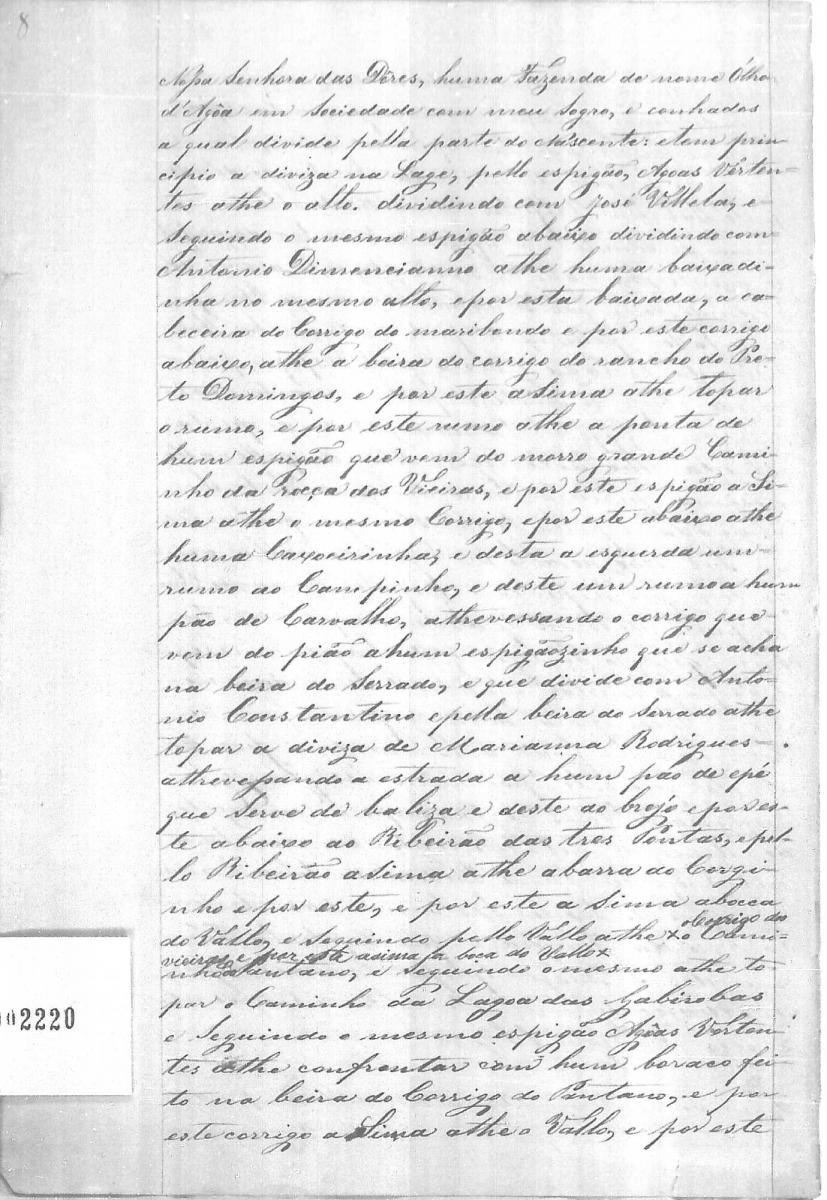 8
Nossa Senhora das Dôres, huma Fazenda de nome Ólho
d'Agôa em Sociedade com meu Sogro, e conhados
a qual divide pella parte do Nascente: etem prin-
cipio a diviza na Lage, pello espigão, Agoas Verten-
tes athe o alto. dividindo com José Villela, e
Seguindo o mesmo espigão abaixo dividindo com
Antonio Dimencianno athe huma baixadi-
nha no mesmo alto, epor esta baixada, a ca-
beceira do Corrigo do maribondo e por este corrigo
abaixo, athe a beira do corrigo do rancho do Pre-
to Domingos, e por este a Sima athe topar
o rumo, e por este rumo athe a ponta de
hum espigão que vem do morro grande Cami-
nho da Rocça dos Vieiras, e por este espigão a Si-
ma athe o mesmo Corrigo, epor este abaixo athe
huma Caxoeirinha, e desta a esquerda um
rumo ao Campinho, e deste um rumo a hum
páo de Carvalho, athevessando o corrigo que
vem do pião ahum espigãozinho que se acha
na beira do Serrado, e que divide com Anto-
nio Constantino epella beira do Serrado athe
topar a diviza de Marianna Rodrigues
athrevessando a estrada a hum páo de epé
que Serve de baliza e deste ao brejo epor es-
te abaixo ao Ribeirão das tres Pontas, epel-
lo Ribeirão a Sima athe abarra do Corgi-
nho e por este, e por este a Sima abocca
do Vallo, e Seguindo pello Vallo athe x o Cami-
o Corrigo dos
vieiras, e por este asima a boca do Vallo x
nho Pantano, e Seguindo o mesmo athe to-
par o Caminho da Lagoa das Gabirobas
e Seguindo o mesmo espigão Agôas Verten-
tes athe confrontar com hum boraco fei-
to na beira do Corrigo do Pantano, e por
este corrigo a Sima athe o Vallo, e por este
002220